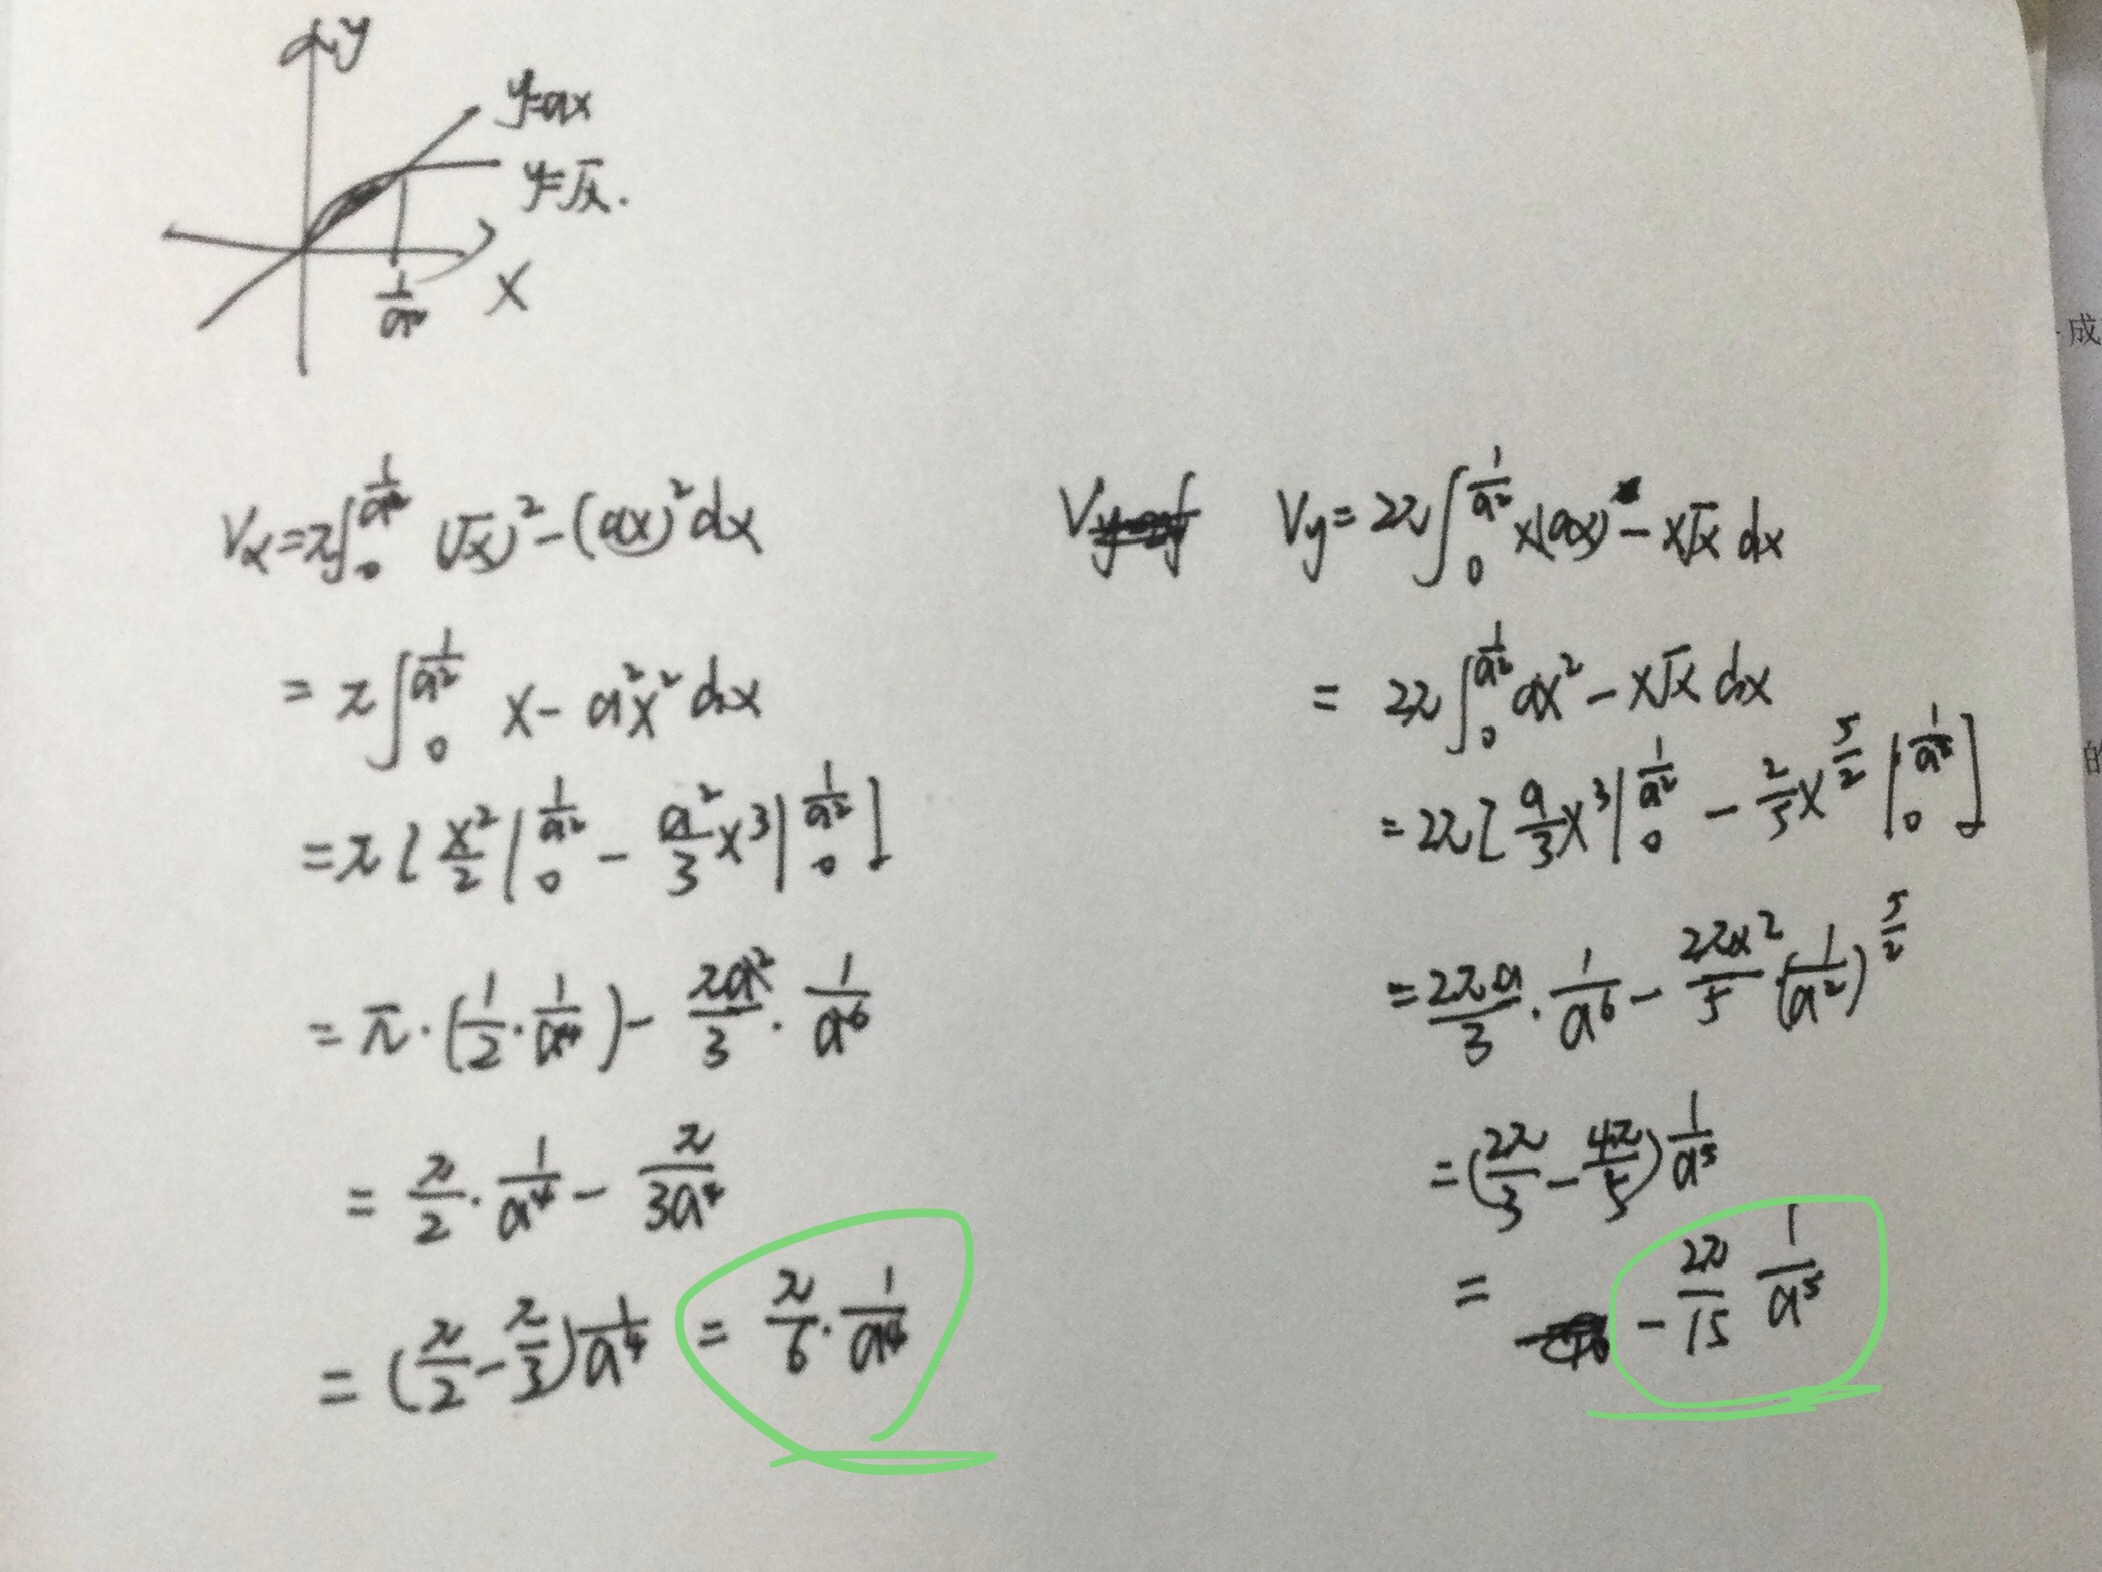 y
y=ax
y=√x.
1/a²
x
Vx=π∫₀^(1/a²) (√x)²-(ax)²dx
=π∫₀^(1/a²) x-a²x²dx
=π[x²/2|₀^(1/a²) - a²/3 x³|₀^(1/a²)]
=π·(1/2·1/a⁴)-πa²/3·1/a⁶
=π/2·1/a⁴-π/3a⁴
=(π/2-π/3)1/a⁴ =π/6·1/a⁴
Vy=2π∫₀^(1/a²) x(ax)-x√x dx
=2π∫₀^(1/a²) ax²-x√x dx
=2π[a/3 x³|₀^(1/a²) - 2/5 x^(5/2)|₀^(1/a²)]
=2πa/3·1/a⁶-2πx2/5(1/a²)^(5/2)
=(2π/3-4π/5)1/a⁵
= -2π/15 1/a⁵
成
的